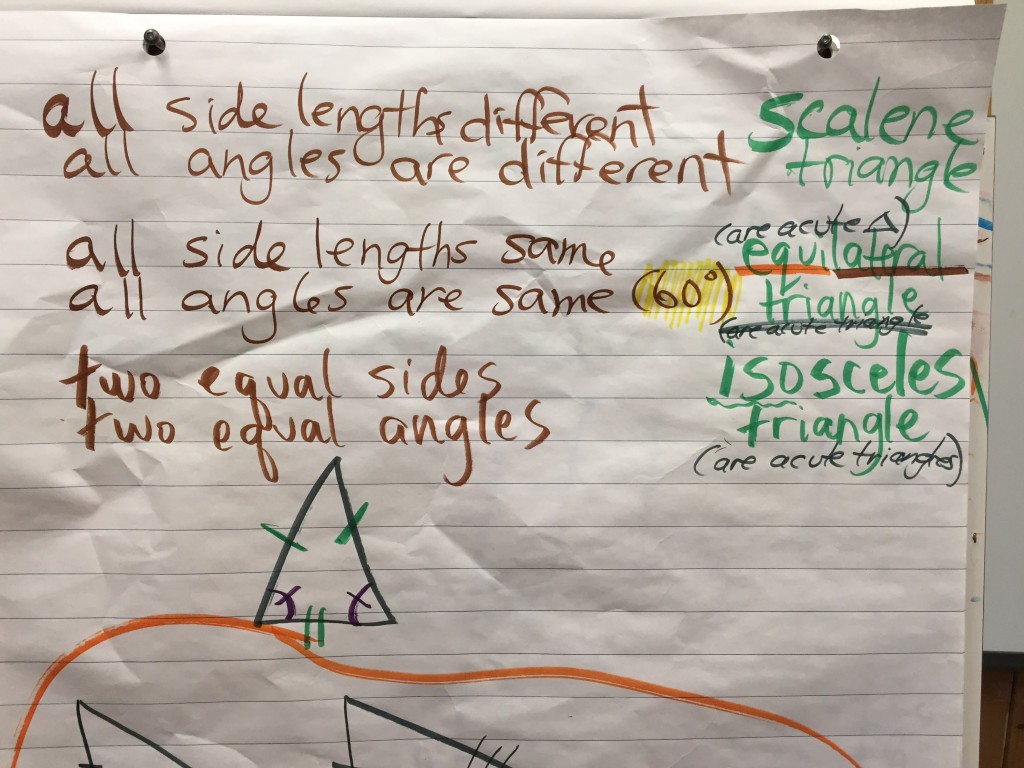 all side lengths different
all angles are different
scalene
triangle
all side lengths same
all angles are same (60°)
(are acute △)
equilateral
triangle
(are acute triangle
two equal sides
two equal angles
isosceles
triangle
(are acute triangles)